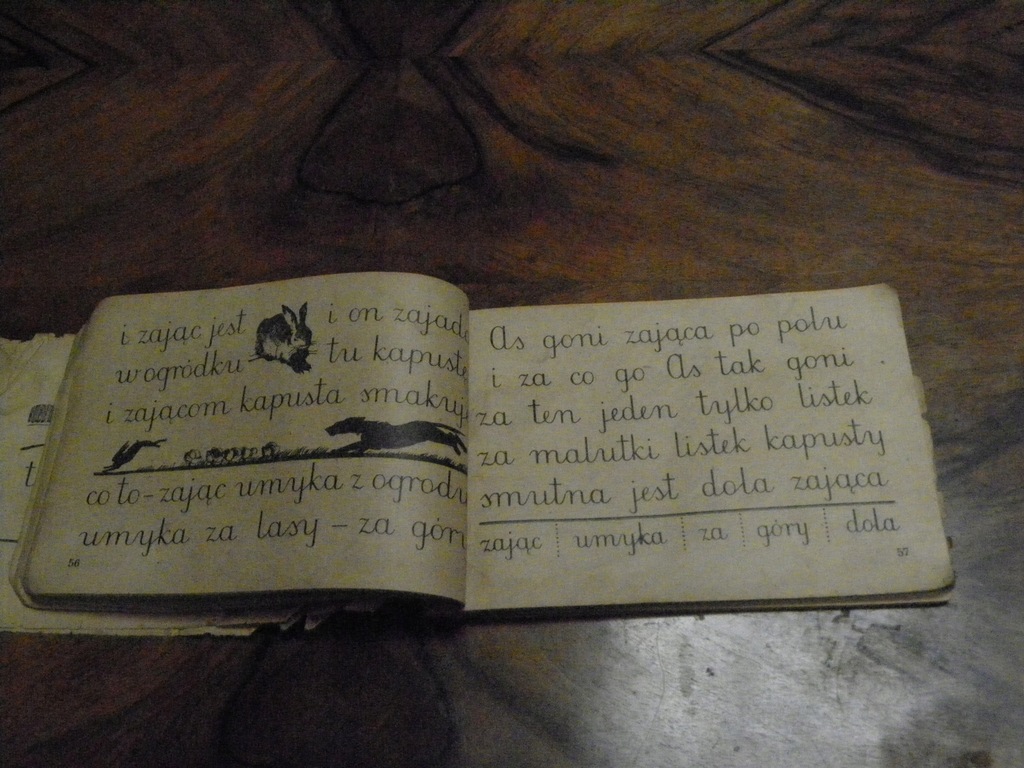 i zając jest i on zajada
w ogródku tu kapustę
i zającom kapusta smakuje
co to-zając umyka z ogrodu
umyka za lasy - za góry
56
As goni zająca po polu
i za co go As tak goni
za ten jeden tylko listek
za malutki listek kapusty
smutna jest dola zająca
zając umyka za góry dola
57